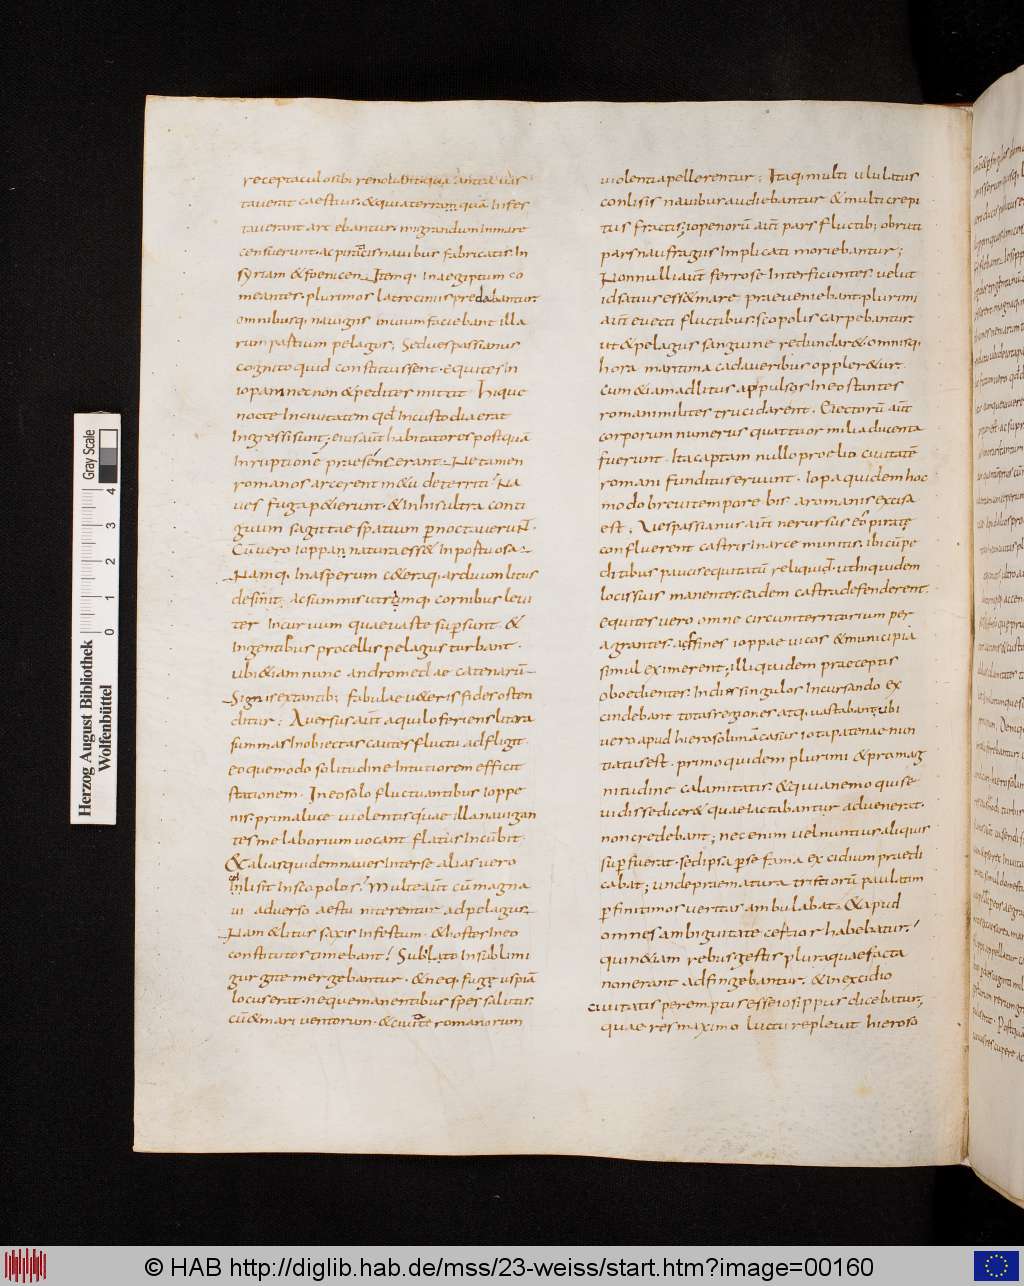 receptaculo sibi renouant quia antea uas
tauerat caestius. &quia terram quā infes
tauerant arcebantur migrandum in mare
censuerunt. ac piraticis nauibus fabricatis. In
syriam & foenicen. Itemq. in aegiptum co
meantes. plurimos latrociniis predabantur
omnibusq. nauigiis inuium faciebant illa
rum partium pelagus; Sed uespassianus
cognito quid constituissent. equites in
iopam necnon & pedites mittit. Hique
nocte Inciuitatem qđ Incustodia erat
Ingressi sunt; eius aūt habitatores postquā
Inruptionē praesensserant. Ne tamen
romanos arcerent m&u deterriti. Na
ues fuga p&ierunt. & Inhis ultra conti
guum sagittae spatium pernoctauerunt.
Cū uero ioppan natura ess& Inportuosa.
Namq. Inasperum c&eraq. arduum litus
desinit. ac summis utrimq. cornibus leui
ter Incuruum quae uaste supersunt. &
Ingentibus procellis pelagus turbant.
ubi &iam nunc andromedae catenarū
Signis extantib; fabulae u&eris fides osten
ditur; Auersus aūt aquilo feriens litora
summas In obiectas cautes fluctu adfligit.
eo quemodo solitudine Intutiorem efficit
stationem. In eo solo fluctuantibus ioppe
nis. prima luce uiolentus quae illa nauigan
tes me laborium uocant flatus Incubit.
& alias quidem naues Inter se alias uero
Inlisit Inscopolos. Multe aūt cū magna
ui aduerso aestu niterentur ad pelagus.
Nam & litus saxis Infestum. & hostes Ineo
constitutos timebant. Sublato Insublimi
gurgite mergebantur. & neq. fugę uspiā
locus erat. neque manentibus spes salutis.
cū & mari uentorum. & ciuitate romanorum
uiolentia pellerentur; Itaq. multi ululatus
conlisis nauibus audiebantur & multi crepi
tus fractis; iopenorū aūt pars fluctib; obruti
pars naufragus Implicati moriebantur;
Nonnulli aūt ferro se Interficientes uelut
id satius ess& mare praeueniebant. plurimi
aūt euecti fluctibus. scopolis carpebantur.
ut & pelagus sanguine redundar& omnisq.
hora maritima cadaueribus oppler&ur.
Cum &iam ad litus appulsos Ineo stantes
romani milites trucidarent. Eiectorū aūt
corporum numerus quattuor milia ducenta
fuerunt. Ita captam nullo proelio ciuitatē
romani funditus eruunt. Iopa quidem hoc
modo breui tempore bis a romanis excisa
est; Uespassianus aūt ne rursus eo piratę
confluerent castris In arce munitis. ibi cū pe
ditibus paucis equitatū reliquid. ut hi quidem
locis suis manentes. eadem castra defenderent.
equites uero omne circum territorium per
agrantes. adfines ioppae uicos & municipia
simul eximerent; illi quidem praeceptis
oboedientes. In dies singulos Incursando ex
cindebant totas regiones atq. uastabant; ibi
uero apud hierosolimā casus iotapatenae nun
tiatus est. primo quidem plurimi & pro mag
nitudine calamitatis. & quia nemo qui se
uidisse dicer& quae iactabantur aduenerat.
non credebant; nec enim uel nuntius aliquis
superfuerat. sed ipsa per se fama excidium praedi
cabat; unde praematura tristiorū paulatim
per finitimos ueritas ambulabat. & apud
omnes ambiguitate certior habebatur.
quin &iam rebus gestis plura quae facta
non erant adfingebantur. & in excidio
ciuitatis peremptus esse iosippus dicebatur;
quae res maximo luctu repleuit hieroso
Herzog August Bibliothek
Wolfenbüttel
Gray Scale
0 1 2 3 4
© HAB http://diglib.hab.de/mss/23-weiss/start.htm?image=00160